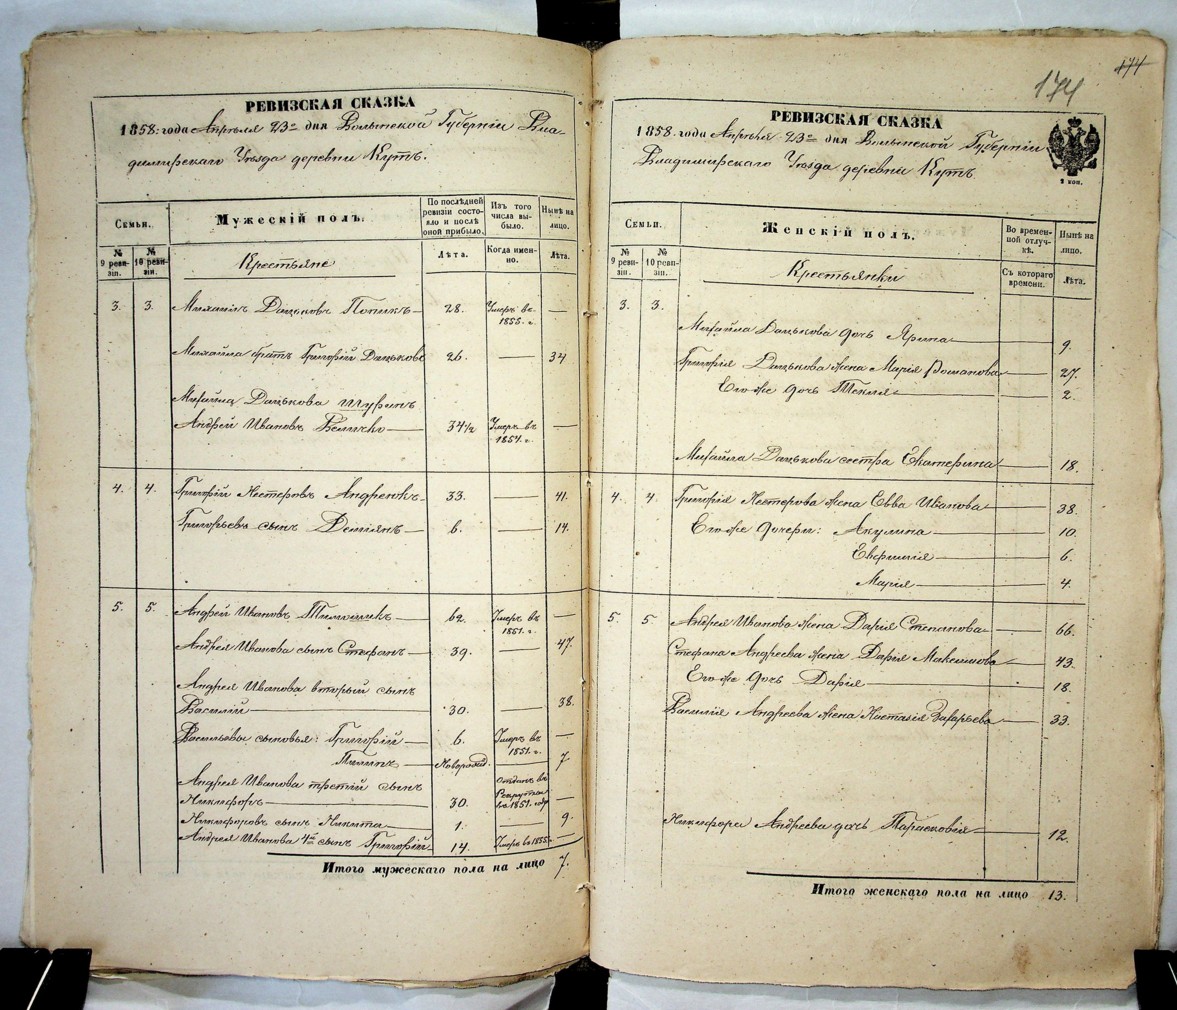 РЕВИЗСКАЯ СКАЗКА
1858: года Апрѣля 23го дня Волынской Губерніи Вла-
димирскаго Уѣзда деревни Кутъ.
Семьи.
№ 9 реви- зіи.
№ 10 реви- зіи.
Мужескій полъ.
По послѣдней ревизіи состо- яло и послѣ оной прибыло.
Изъ того числа вы- было.
Нынѣ на лицо.
Крестьяне
Лѣта.
Когда имен- но.
Лѣта.
3. 3. Михаилъ Дацьковъ Попикъ 28. Умеръ въ 1855. г. —
Михайла братъ Григорій Дацьковъ 26. — 34
Михайла Дацькова шуринъ
Андрей Ивановъ Величко 34½ Умеръ въ 1854. г. —
4. 4. Григорій Нестеровъ Андреюкъ 33. — 41.
Григорьевъ сынъ Деміянъ 6. — 14.
5. 5. Андрей Ивановъ 62. Умеръ въ 1851. г. —
Андрея Иванова сынъ Стефанъ 39. — 47.
Андрея Иванова вторый сынъ
Василій 30. — 38.
Васильевы сыновья: Григорій 6. Умеръ въ 1851. г. —
Новорожд. — 7
Андрея Иванова третій сынъ
Никифоръ 30. Отданъ въ Рекруты въ 1851. году —
Никифоровъ сынъ Никита 1. — 9.
Андрея Иванова 4й сынъ Григорій 14. Умеръ въ 1855. —
Итого мужескаго пола на лицо 7.
174
174
РЕВИЗСКАЯ СКАЗКА
1858. года Апрѣля 23го дня Волынской Губерніи
Владимирскаго Уѣзда деревни Кутъ.
2 коп.
Семьи.
№ 9 реви- зіи.
№ 10 реви- зіи.
Женскій полъ.
Во времен- ной отлуч- кѣ.
Нынѣ на лицо.
Крестьянки
Съ котораго времени.
Лѣта.
3. 3.
Михайла Дацькова дочь Ярина 9.
Григорія Дацькова жена Марія Романова 27.
Его же дочь Текля 2.
Михайла Дацькова сестра Екатерина 18.
4. 4. Григорія Нестерова жена Евва Иванова 38.
Его же дочери: Акулина 10.
Евфимія 6.
Марія 4.
5. 5 Андрея Иванова жена Дарія Степанова 66.
Стефана Андреева жена Дарія Максимова 43.
Его же дочь Дарія 18.
Василія Андреева жена Насталія Захарьева 33.
Никифора Андреева дочь Парасковія 12.
Итого женскаго пола на лицо 13.